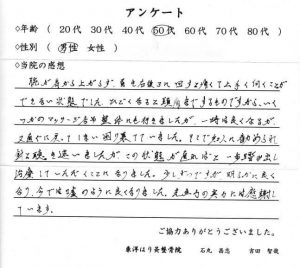 アンケート
◇年齢 ( 20代 30代 40代 50代 60代 70代 80代 )
◇性別 ( 男性 女性 )
◇当院の感想
腕が肩から上がらず、首も左右後に回すと痛くて上手く向くことが
できない状態でした。ひどくなると頭痛までするものですから、いく
つかのマッサージ店や整体にも行きましたが、一時は良くなるが
又直ぐに戻ってしまい困り果てていました。そこで知人に勧められ
半
治療していただくことになりました。少しずつですが明らかに良くな
り、今では嘘のように良くなりました。先生方の実力には感謝し
ています。
ご協力ありがとうございました。
東洋はり灸整骨院 石丸 昌志 吉田 智哉